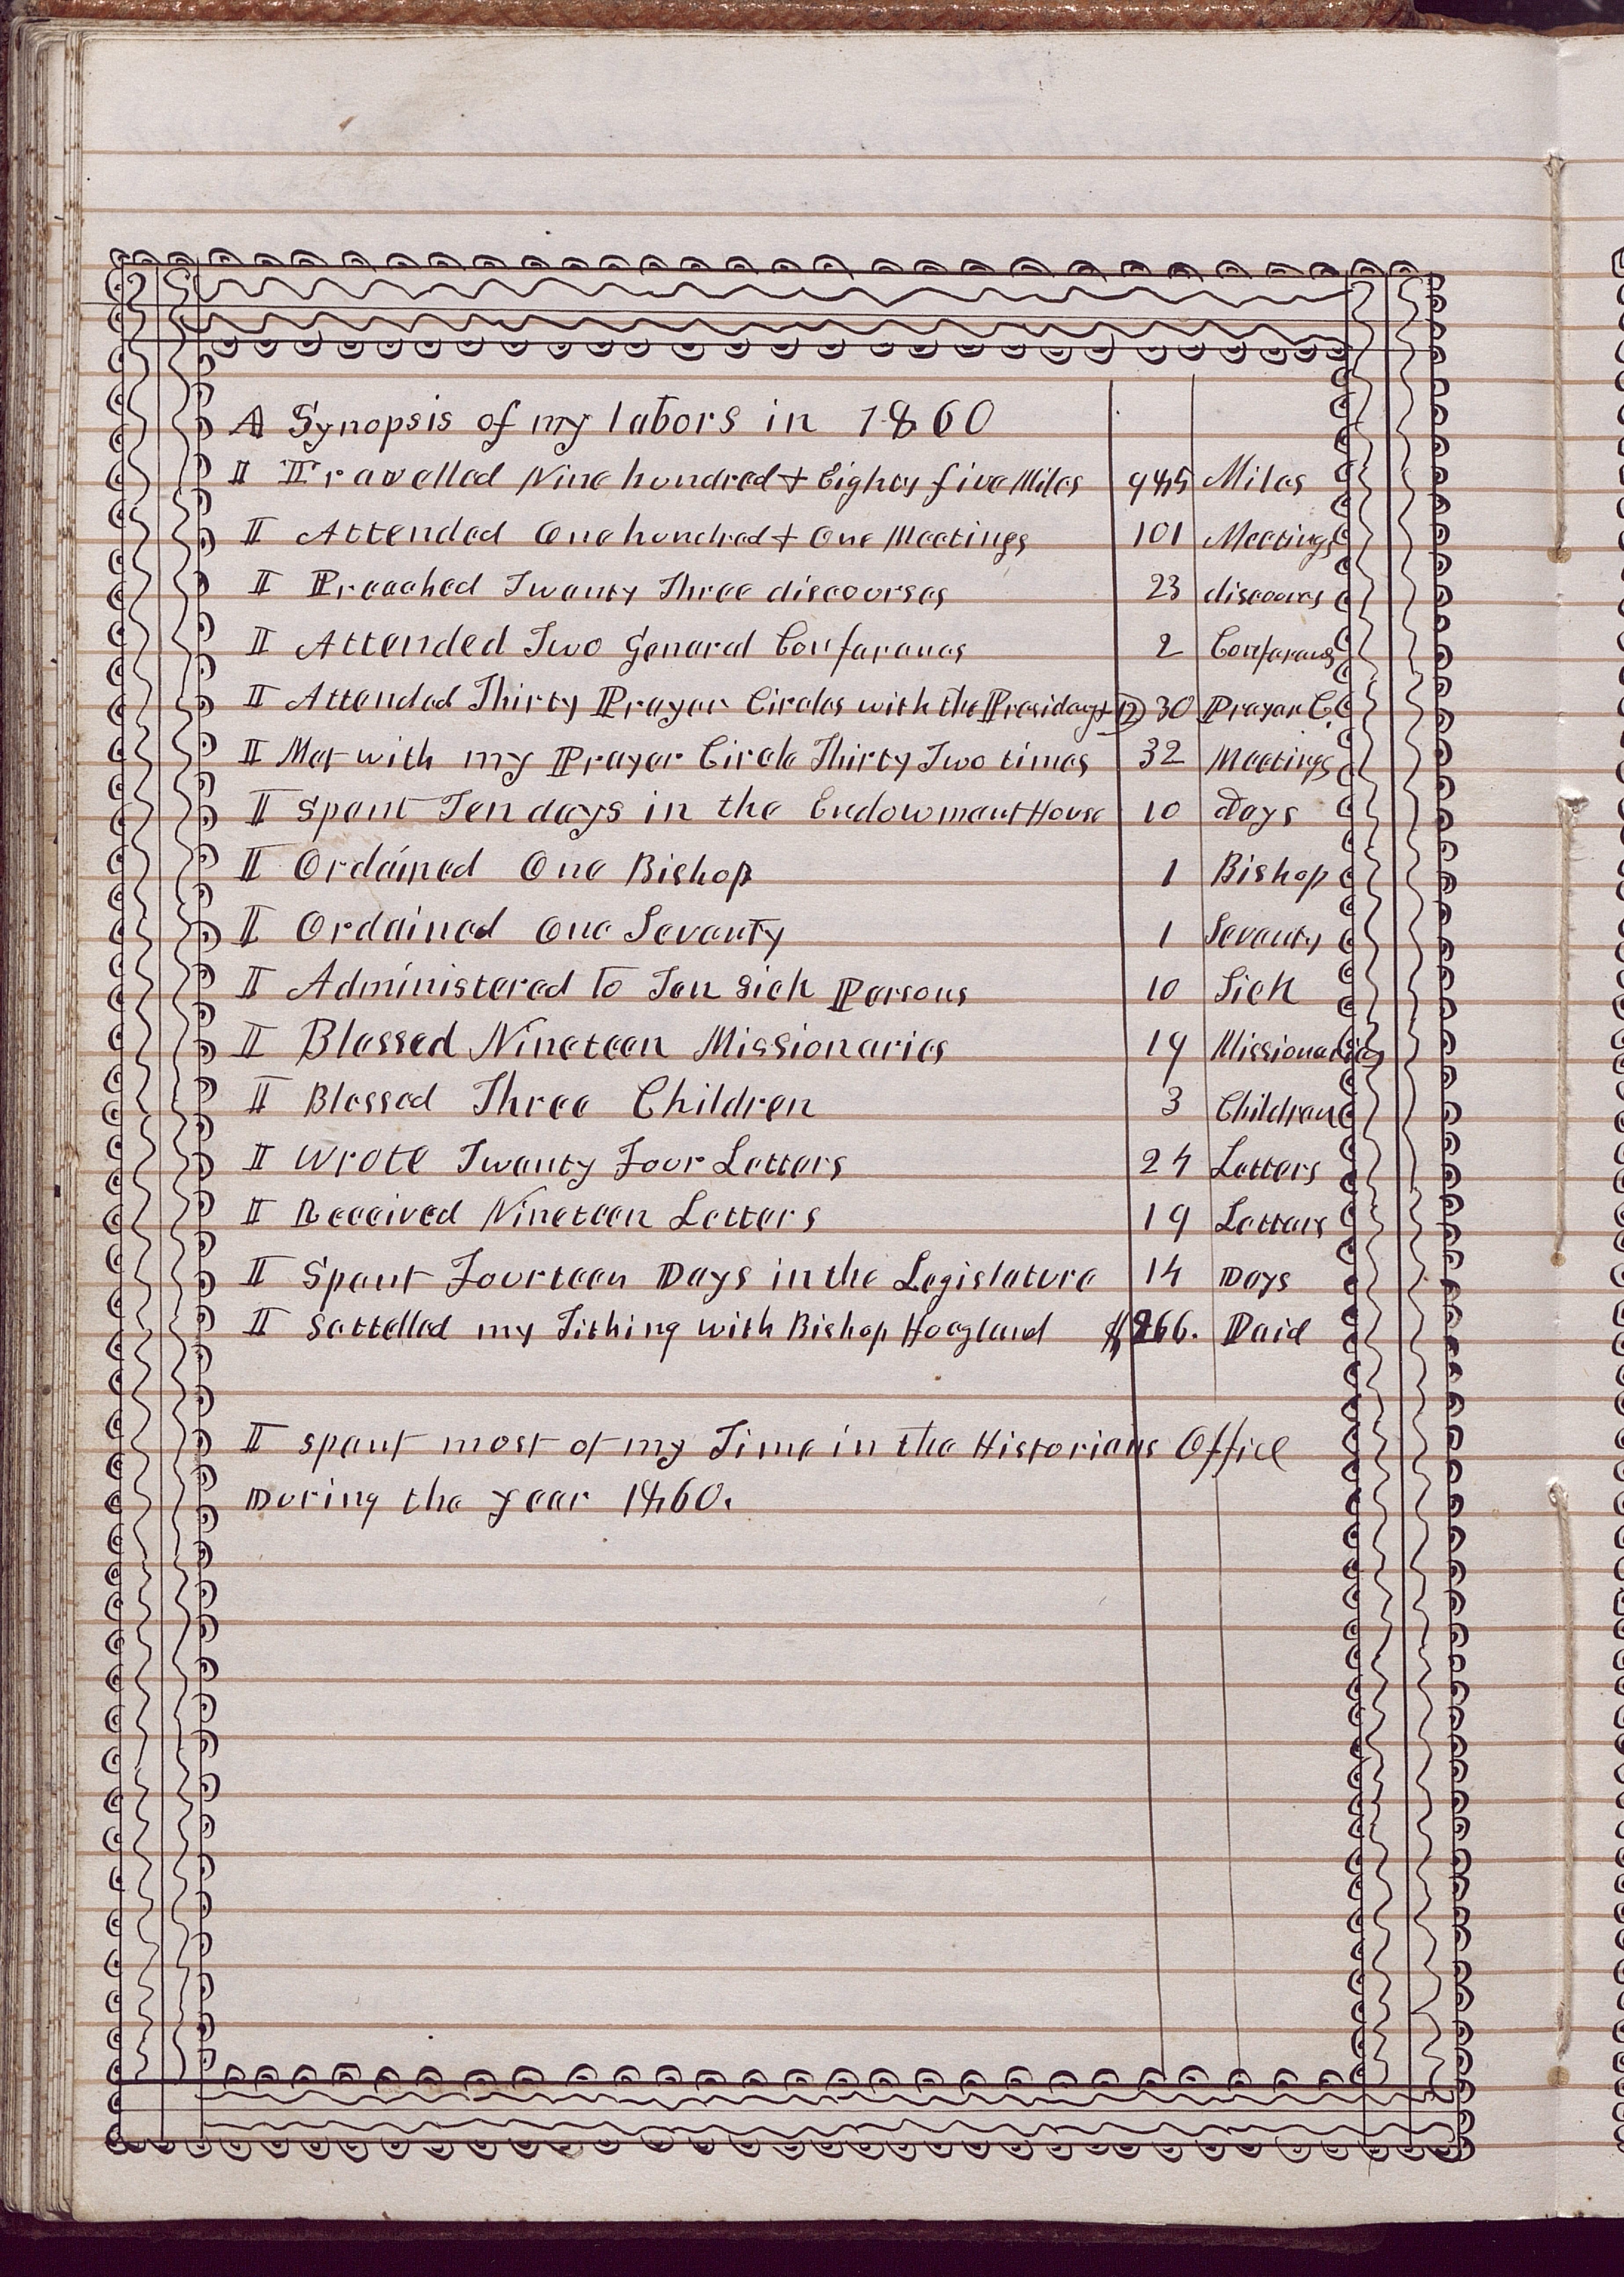 A Synopsis of my labors in 1860
I Travelled Nine hundred + Eighty five Miles 985 Miles
I Attended One hundred + One Meetings 101 Meetings
I Preached Twenty Three discourses 23 discours
I Attended Two General Conferances 2 Conferances
I Attended Thirty Prayer Circles with the Presidency + 12 30 Prayer C.
I Met with my Prayer Circle Thirty Two times 32 Meetings
I Spent Ten days in the Endowment House 10 Days
I Ordained One Bishop 1 Bishop
I Ordained One Seventy 1 Seventy
I Administered to Ten sick Persons 10 Sick
I Blessed Nineteen Missionaries 19 Missionaries
I Blessed Three Children 3 Children
I Wrote Twenty Four Letters 24 Letters
I Received Nineteen Letters 19 Letters
I Spent Fourteen Days in the Legislature 14 Days
I Settelled my Tithing with Bishop Hoagland $266. Paid
I spent most of my Time in the Historians Office
During the year 1860.